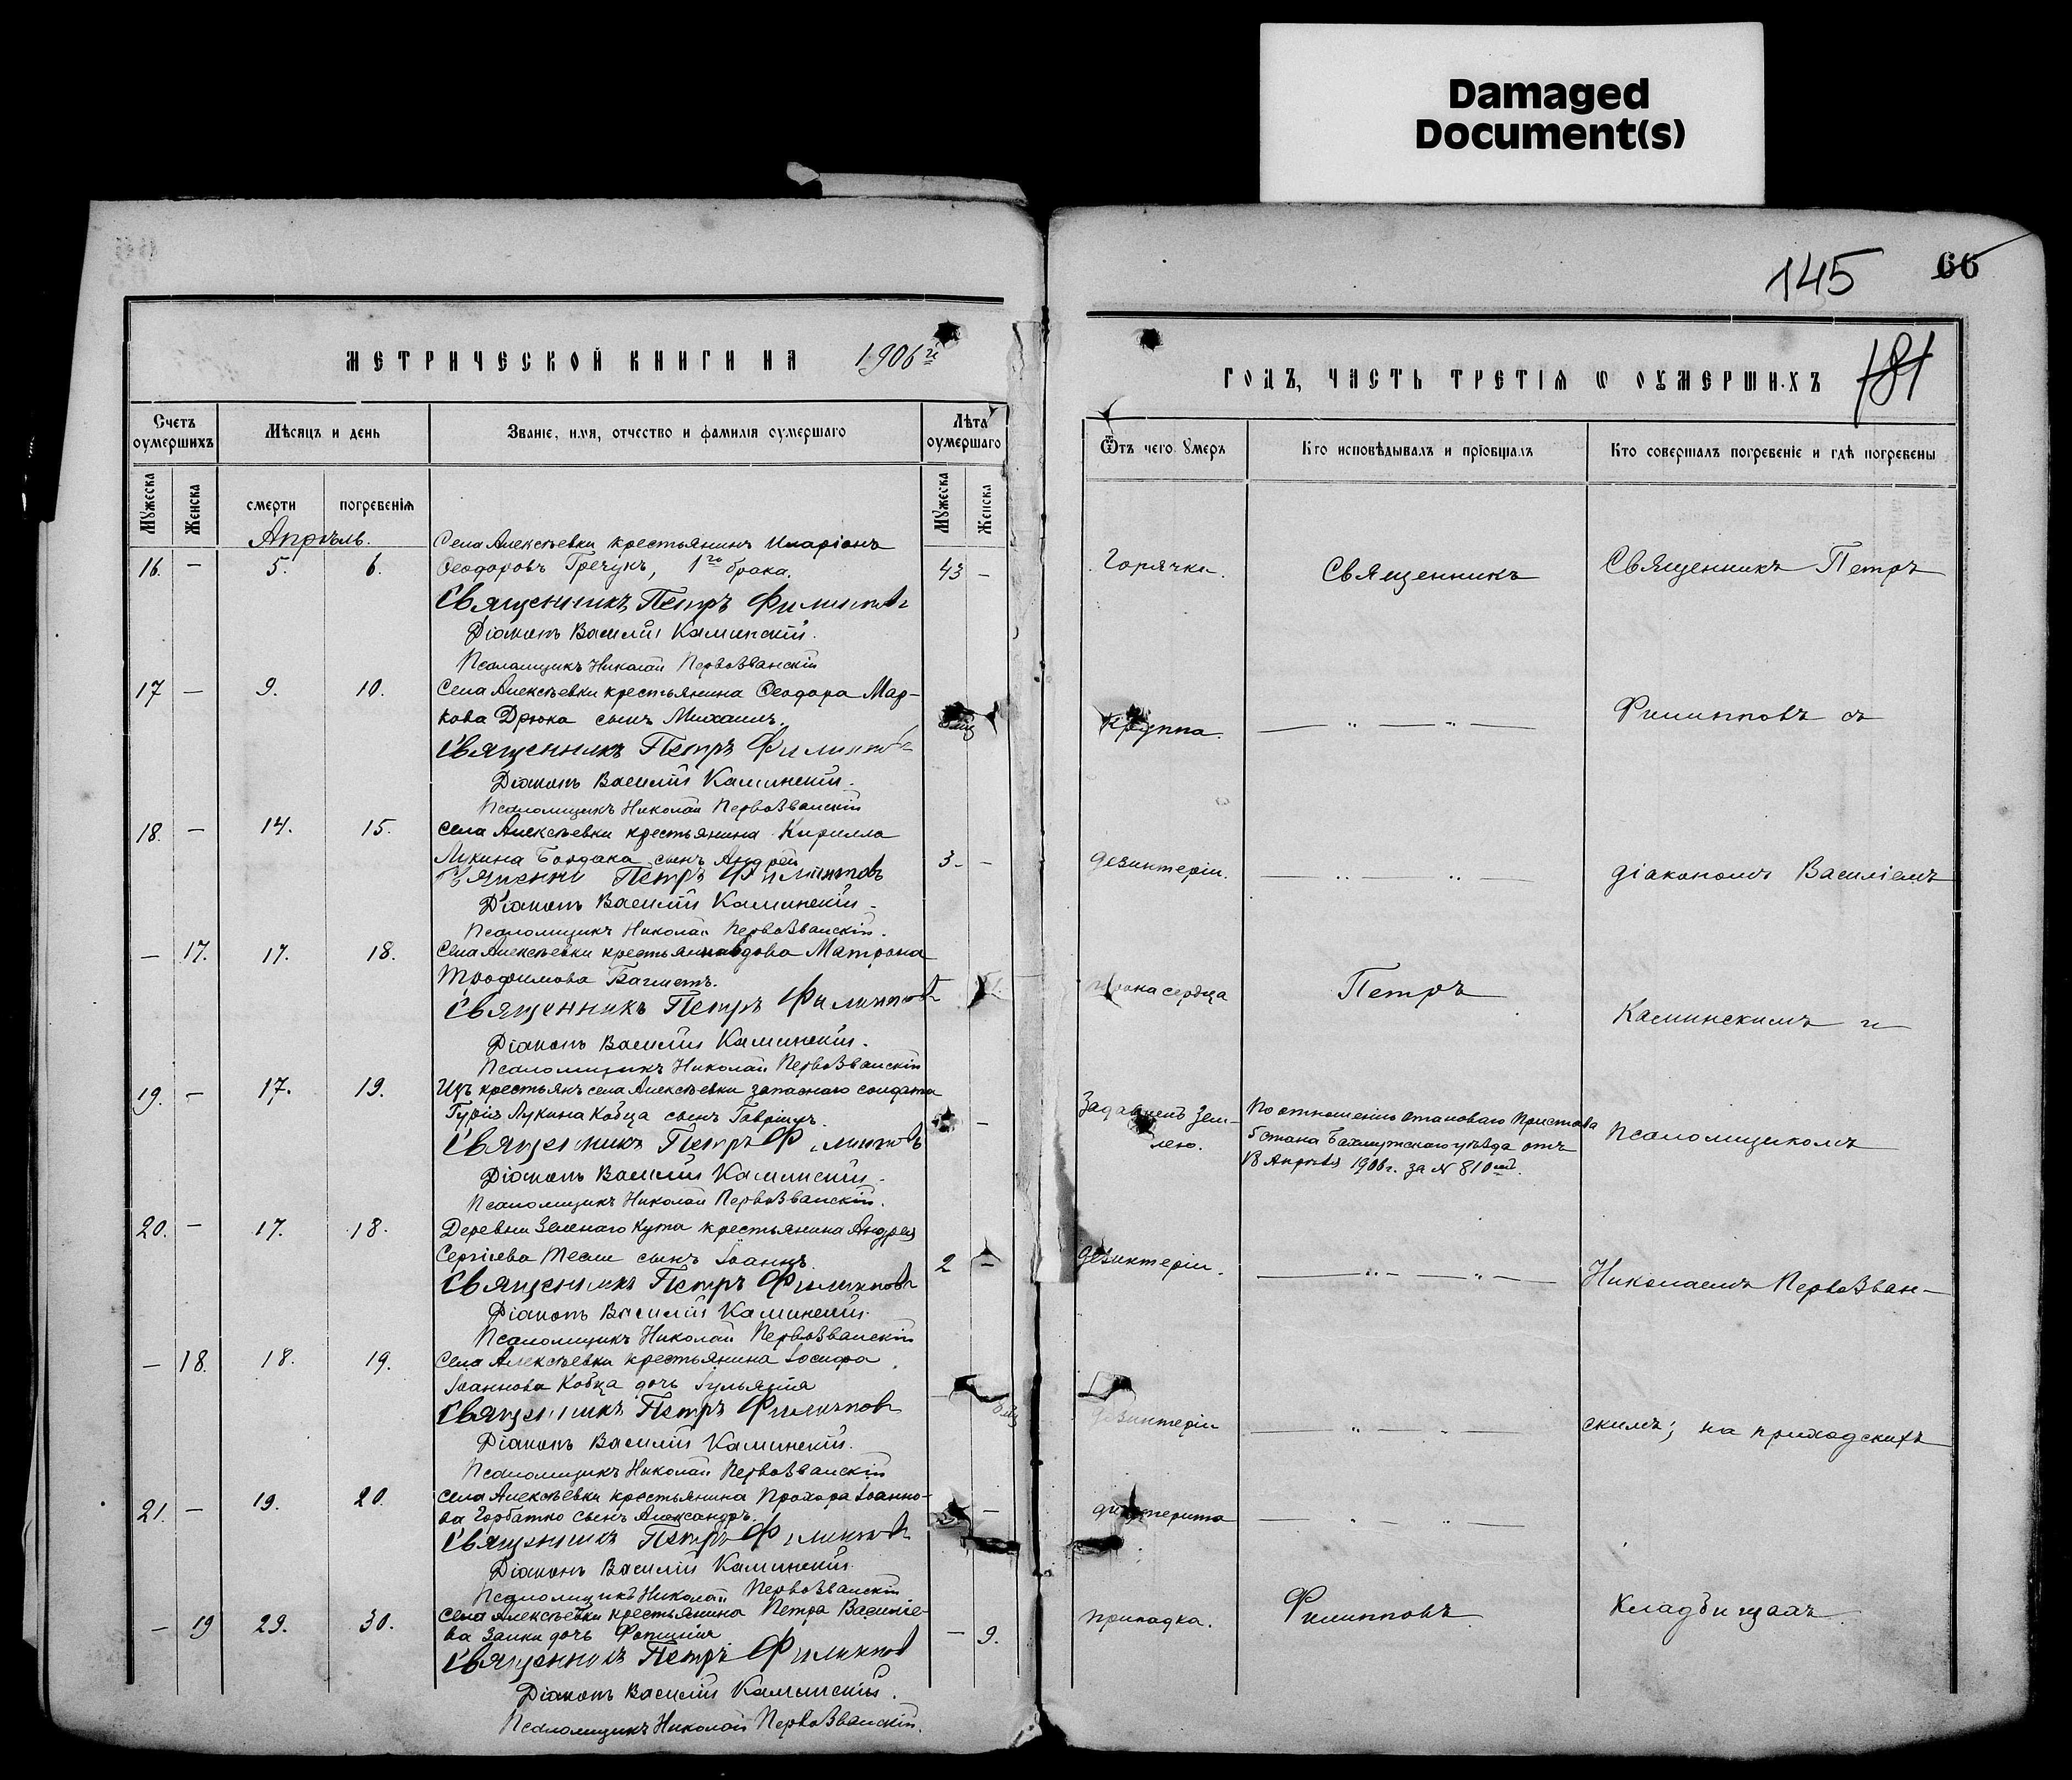 Damaged
Document(s)
145 66
МЕТРИЧЕСКОЙ КНИГИ НА 1906 й
ГОДЪ, ЧАСТЬ ТРЕТІЯ Ѡ ОУМЕРШИХЪ 181
Счетъ оумершихъ
Мѣсяцъ и день
Званіе, имя, отчество и фамилія оумершаго
Лѣта оумершаго
Ѿтъ чего ꙋмеръ
Кто исповѣдывалъ и пріобщалъ
Кто совершалъ погребеніе и гдѣ погребены
Мꙋжеска Женска смерти погребенія Мꙋжеска Женска
Апрѣль.
Села Алексѣевки крестьянинъ Иларіонъ
16. — 5. 6. Ѳеодоровъ Гречукъ, 1го брака. 43 — Горячки. Священникъ Священникъ Петръ
Священникъ Петръ Филипповъ
Діаконъ Василій Каминскій.
Псаломщикъ Николай Первозванскій
17 — 9. 10. Села Алексѣевки крестьянина Ѳеодора Мар-
кова Дрюка сынъ Михаилъ. Круппа. — „ — „ — Филипповъ съ
Священникъ Петръ Филипповъ
Діаконъ Василій Каминскій.
Псаломщикъ Николай Первозванскій
18. — 14. 15. Села Алексѣевки крестьянина Кирилла
Лукина сынъ Андрей 3 — дезинтеріи. — „ — „ — діакономъ Василіемъ
Петръ Филипповъ
Діаконъ Василій Каминскій.
Псаломщикъ Николай Первозванскій.
— 17. 17. 18. Села Алексѣевки вдова Матрона
Трофимова Багметъ. сердца Петръ Каминскимъ и
Священникъ Петръ Филипповъ
Діаконъ Василій Каминскій.
Псаломщикъ Николай Первозванскій
19. — 17. 19. Изъ крестьянъ села Алексѣевки запаснаго солдата
Гурія Лукина Кобца сынъ Гавріилъ. — Задавленъ зем-
лею. По отношенію Становаго Пристава
5 стана Бахмутскаго уѣзда отъ
18 Апрѣля 1906 г. за № 810 Псаломщикомъ
Священникъ Петръ Филипповъ
Діаконъ Василій Каминскій.
Псаломщикъ Николай Первозванскій.
20. — 17. 18. Деревни Зеленаго Кута крестьянина Андрея
Сергіева Тесли сынъ Іоаннъ. 2 — дезинтеріи. — „ — „ — Николаемъ Первозван-
Священникъ Петръ Филипповъ
Діаконъ Василій Каминскій.
Псаломщикъ Николай Первозванскій
— 18. 18. 19. Села Алексѣевки крестьянина Іосифа
Іоаннова Кобца дочь Іульянія дезинтеріи — „ — „ — скимъ; на приходскихъ
Священникъ Петръ Филипповъ
Діаконъ Василій Каминскій.
Псаломщикъ Николай Первозванскій
21. — 19. 20. Села Алексѣевки крестьянина Прохора Іоанно-
ва Горбатко сынъ Александръ. — дифтерита — „ — „ —
Священникъ Петръ Филипповъ
Діаконъ Василій Каминскій
Псаломщикъ Николай Первозванскій
— 19 29. 30. Села Алексѣевки крестьянина Петра Василіе-
ва Заики дочь Фотинія — 9. припадка. Филипповъ. кладбищахъ.
Священникъ Петръ Филипповъ
Діаконъ Василій Каминскій.
Псаломщикъ Николай Первозванскій.